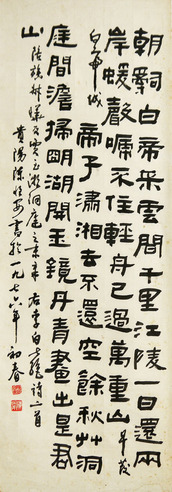 朝辭白帝采雲間千里江陵一日還兩
岸蝯聲嗁不住輕舟已過萬重山 早發
白帝城 帝子瀟湘去不還空餘秋艸洞
庭間澹掃明湖開玉鏡丹青畫出是君
山 陪族叔曄及賈至游洞庭之末章 右李白七絶詩二首
貴陽陳恒安書於一九七六年初春